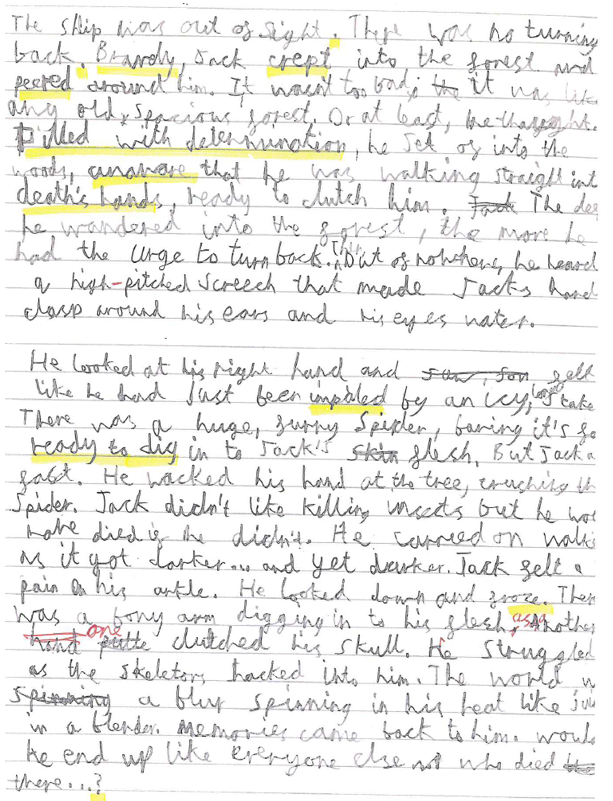 The ship was out of sight. There was no turning
back. Bravely, Jack crept into the forest and
peered around him. It wasn't too bad; it was like
any old, spacious forest. Or at least, he thought.
Filled with determination, he set of into the
woods, unaware that he was walking straight int
death's hands, ready to clutch him. Jack The dee
he wandered into the forest, the more he
had the urge to turn back. Then, out of nowhere, he heard
a high-pitched screech that made Jacks hand
clasp around his ears and his eyes water.
He looked at his right hand and saw, felt
like he had just been impaled by an icy, stake
There was a huge, furry spider, baring it's fa
ready to dig in to Jack's skin flesh. But Jack
fast. He wacked his hand at the tree, crushing th
Spider. Jack didn't like killing insects but he wou
have died if he didn't. He carried on walki
as it got darker... and yet darker. Jack felt a
pain in his ankle. He looked down and froze. Ther
was a bony arm digging in to his flesh, as another
hand one clutched his skull. He struggled
as the skeletons hacked into him. The world w
spinning a blur spinning in his heat like jui
in a blender. Memories came back to him. Would
he end up like everyone else who died
there...?